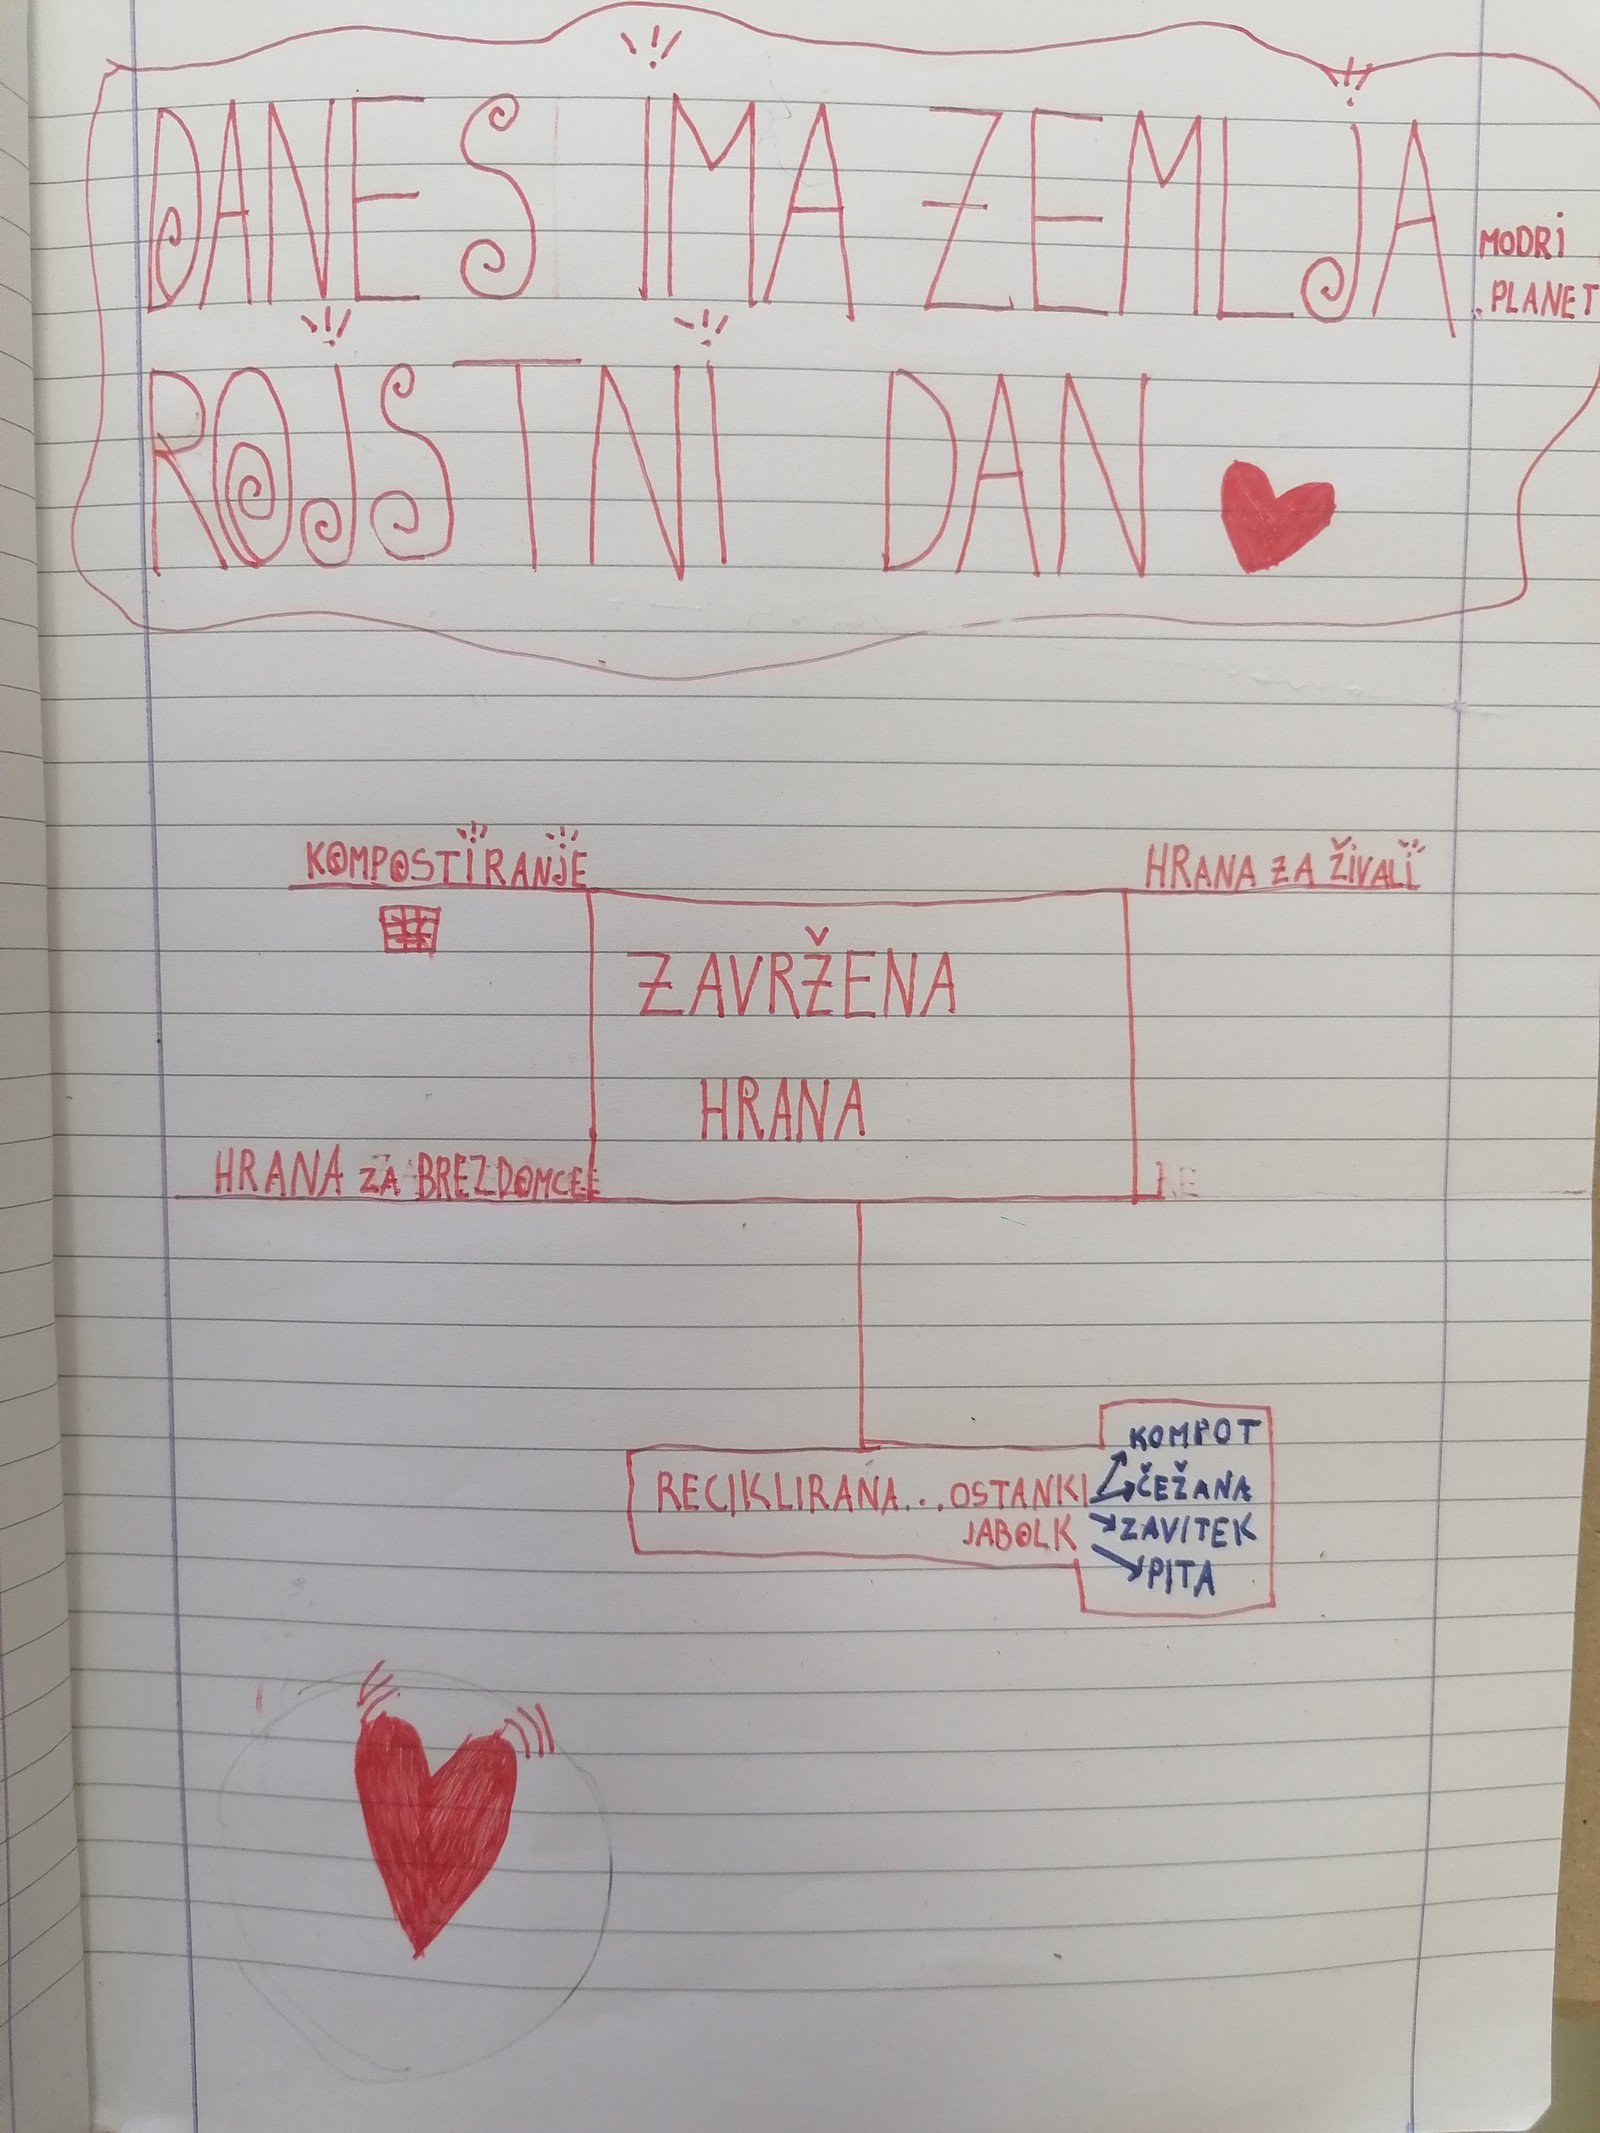 DANES IMA ZEMLJA
MODRI
PLANET
ROJSTNI DAN
KOMPOSTIRANJE
HRANA ZA ŽIVALI
ZAVRŽENA
HRANA
HRANA ZA BREZDOMCE
RECIKLIRANA...OSTANKI
JABOLK
KOMPOT
ČEŽANA
ZAVITEK
PITA